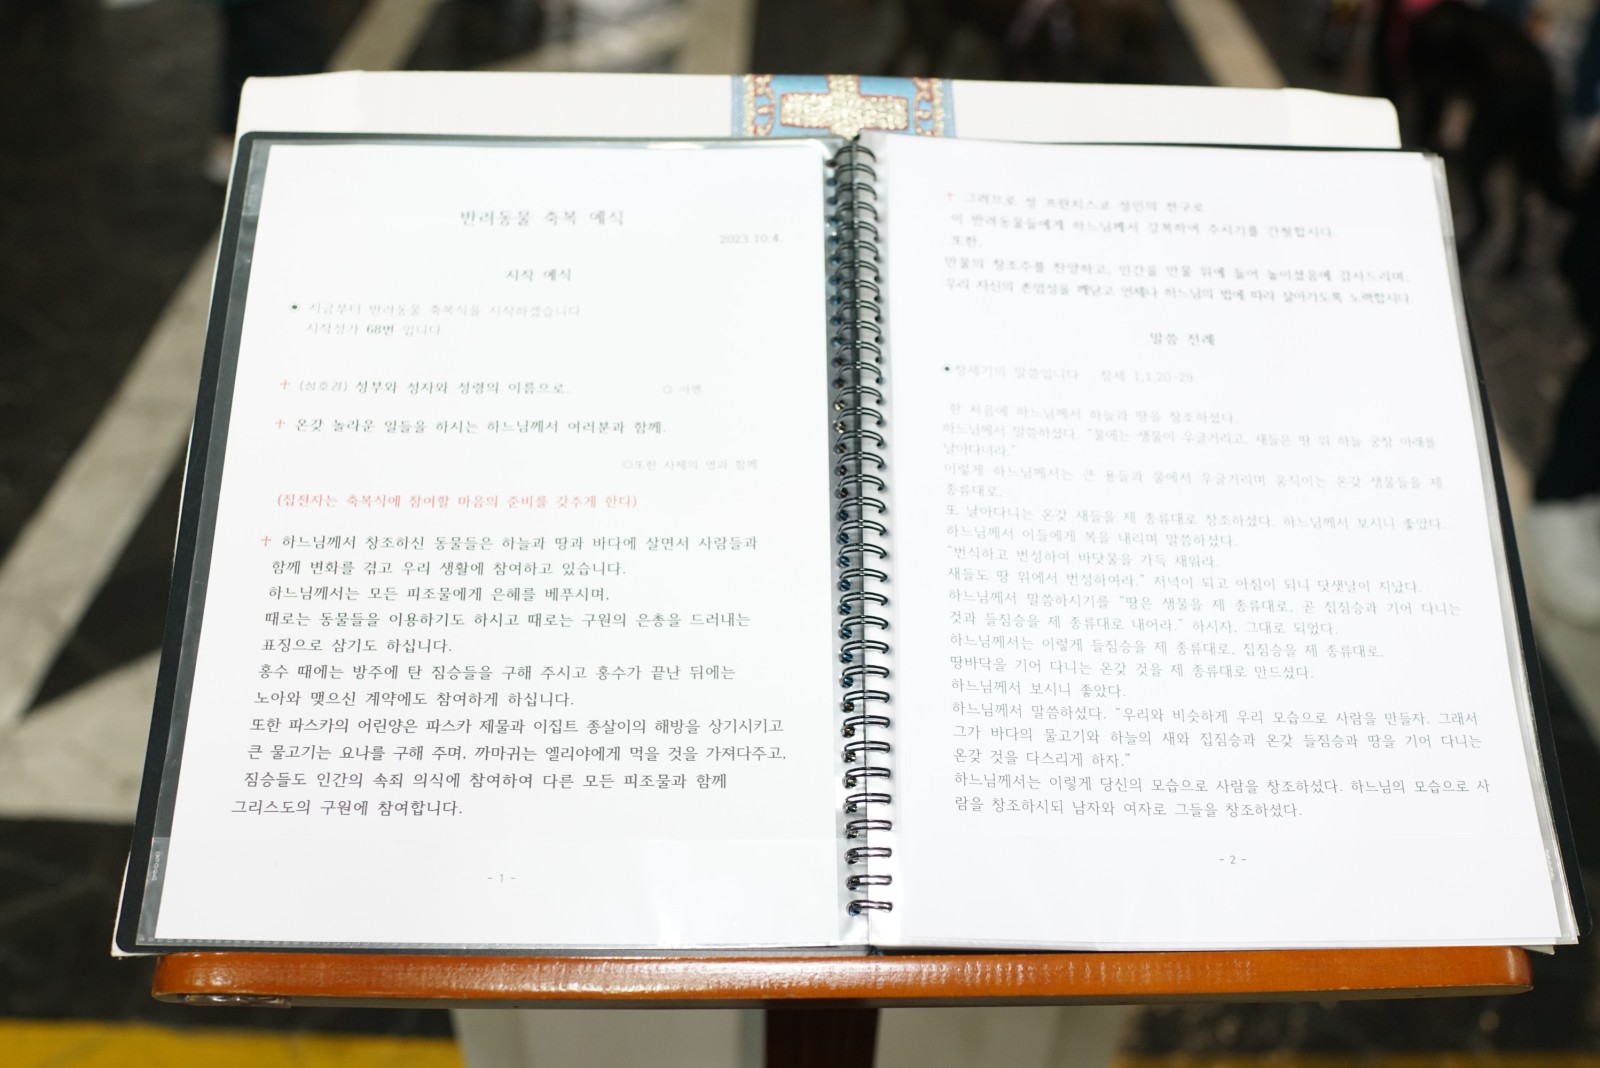 반려동물 축복 예식
2023.10.4.
시작 예식
지금부터 반려동물 축복식을 시작하겠습니다
시작성가 68번 입니다
✝ (성호경) 성부와 성자와 성령의 이름으로. ○ 아멘
✝ 온갖 놀라운 일들을 하시는 하느님께서 여러분과 함께.
○또한 사제의 영과 함께
(집전자는 축복식에 참여할 마음의 준비를 갖추게 한다)
✝ 하느님께서 창조하신 동물들은 하늘과 땅과 바다에 살면서 사람들과
함께 변화를 겪고 우리 생활에 참여하고 있습니다.
하느님께서는 모든 피조물에게 은혜를 베푸시며,
때로는 동물들을 이용하기도 하시고 때로는 구원의 은총을 드러내는
표징으로 삼기도 하십니다.
홍수 때에는 방주에 탄 짐승들을 구해 주시고 홍수가 끝난 뒤에는
노아와 맺으신 계약에도 참여하게 하십니다.
또한 파스카의 어린양은 파스카 제물과 이집트 종살이의 해방을 상기시키고
큰 물고기는 요나를 구해 주며, 까마귀는 엘리야에게 먹을 것을 가져다주고,
짐승들도 인간의 속죄 의식에 참여하여 다른 모든 피조물과 함께
그리스도의 구원에 참여합니다.
- 1 -
✝ 그러므로 성 프란치스코 성인의 전구로
이 반려동물들에게 하느님께서 강복하여 주시기를 간청합시다.
또한,
만물의 창조주를 찬양하고, 인간을 만물 위에 들어 높이셨음에 감사드리며,
우리 자신의 존엄성을 깨닫고 언제나 하느님의 법에 따라 살아가도록 노력합시다.
말씀 전례
창세기의 말씀입니다 창세 1,1.20-29
한 처음에 하느님께서 하늘과 땅을 창조하셨다.
하느님께서 말씀하셨다. "물에는 생물이 우글거리고, 새들은 땅 위 하늘 궁창 아래를
날아다녀라."
이렇게 하느님께서는 큰 용들과 물에서 우글거리며 움직이는 온갖 생물들을 제
종류대로,
또 날아다니는 온갖 새들을 제 종류대로 창조하셨다. 하느님께서 보시니 좋았다.
하느님께서 이들에게 복을 내리며 말씀하셨다.
"번식하고 번성하여 바닷물을 가득 채워라.
새들도 땅 위에서 번성하여라." 저녁이 되고 아침이 되니 닷샛날이 지났다.
하느님께서 말씀하시기를 "땅은 생물을 제 종류대로, 곧 집짐승과 기어 다니는
것과 들짐승을 제 종류대로 내어라." 하시자, 그대로 되었다.
하느님께서는 이렇게 들짐승을 제 종류대로, 집짐승을 제 종류대로,
땅바닥을 기어 다니는 온갖 것을 제 종류대로 만드셨다.
하느님께서 보시니 좋았다.
하느님께서 말씀하셨다. "우리와 비슷하게 우리 모습으로 사람을 만들자. 그래서
그가 바다의 물고기와 하늘의 새와 집짐승과 온갖 들짐승과 땅을 기어 다니는
온갖 것을 다스리게 하자."
하느님께서는 이렇게 당신의 모습으로 사람을 창조하셨다. 하느님의 모습으로 사
람을 창조하시되 남자와 여자로 그들을 창조하셨다.
- 2 -